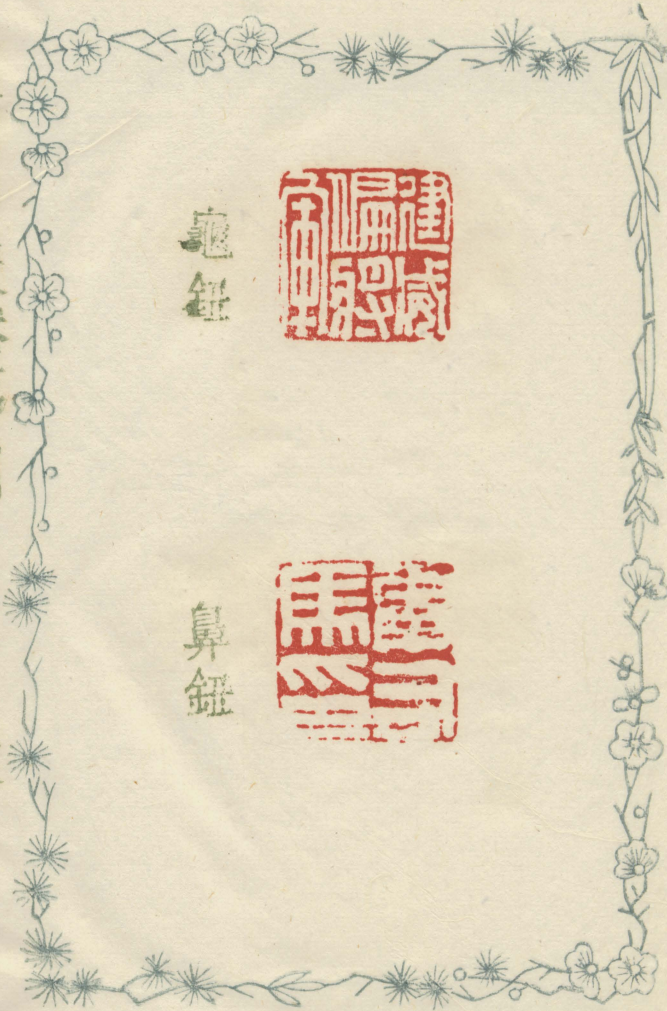 建威
偏將
軍
龜鈕
軍司
馬印
鼻鈕